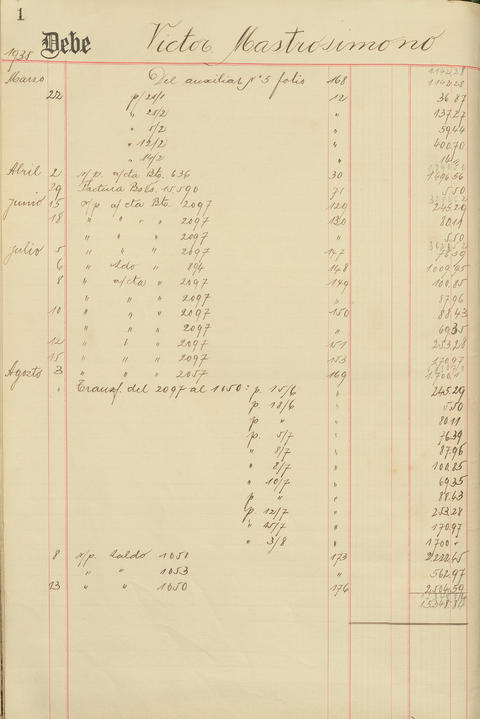 1
Debe Victor Mastrosimono
1935
1142,28
Marzo Del auxiliar Nº 5 folio 168 1142,28
22 p/ 21/1 12 36.87
" 25/2 " 137.27
" 5/2 " 59.44
" 12/2 " 400.70
" 14/2 "
Abril 2 s/p. a/cta Bte. 636 30 1.496.56
29 Factura Bols. 15590 71 5.50
Junio 15 s/p a/cta Bte. 2097 129 245.29
18 " " " " 2097 130 80.11
" " " 2097 " 5.50
Julio 5 " " " 2097 147 76.39
6 " Sdo " 894 148 1.009.95
8 " a/cta " 2097 149 100.85
" " " 2097 " 87.96
10 " " " 2097 150 88.43
" " " 2097 " 69.35
12 " " " 2097 151 253.28
15 " " " 2097 153 170.97
Agosto 3 " " " 2057 169 1.700.-
" Transf. del 2097 al 1050: p. 15/6 " 245.29
p. 18/6 " 5.50
p " " 80.11
p. 5/7 " 76.39
" 8/7 " 87.96
" 8/7 " 100.85
" 10/7 " 69.35
p " " 88.43
p. 12/7 " 253.28
" 15/7 " 170.97
" 3/8 " 1700.-
8 s/p. saldo 1050 173 2.222.45
" " 1053 " 562.97
13 " " 1050 176 2.504.59
15.048.84